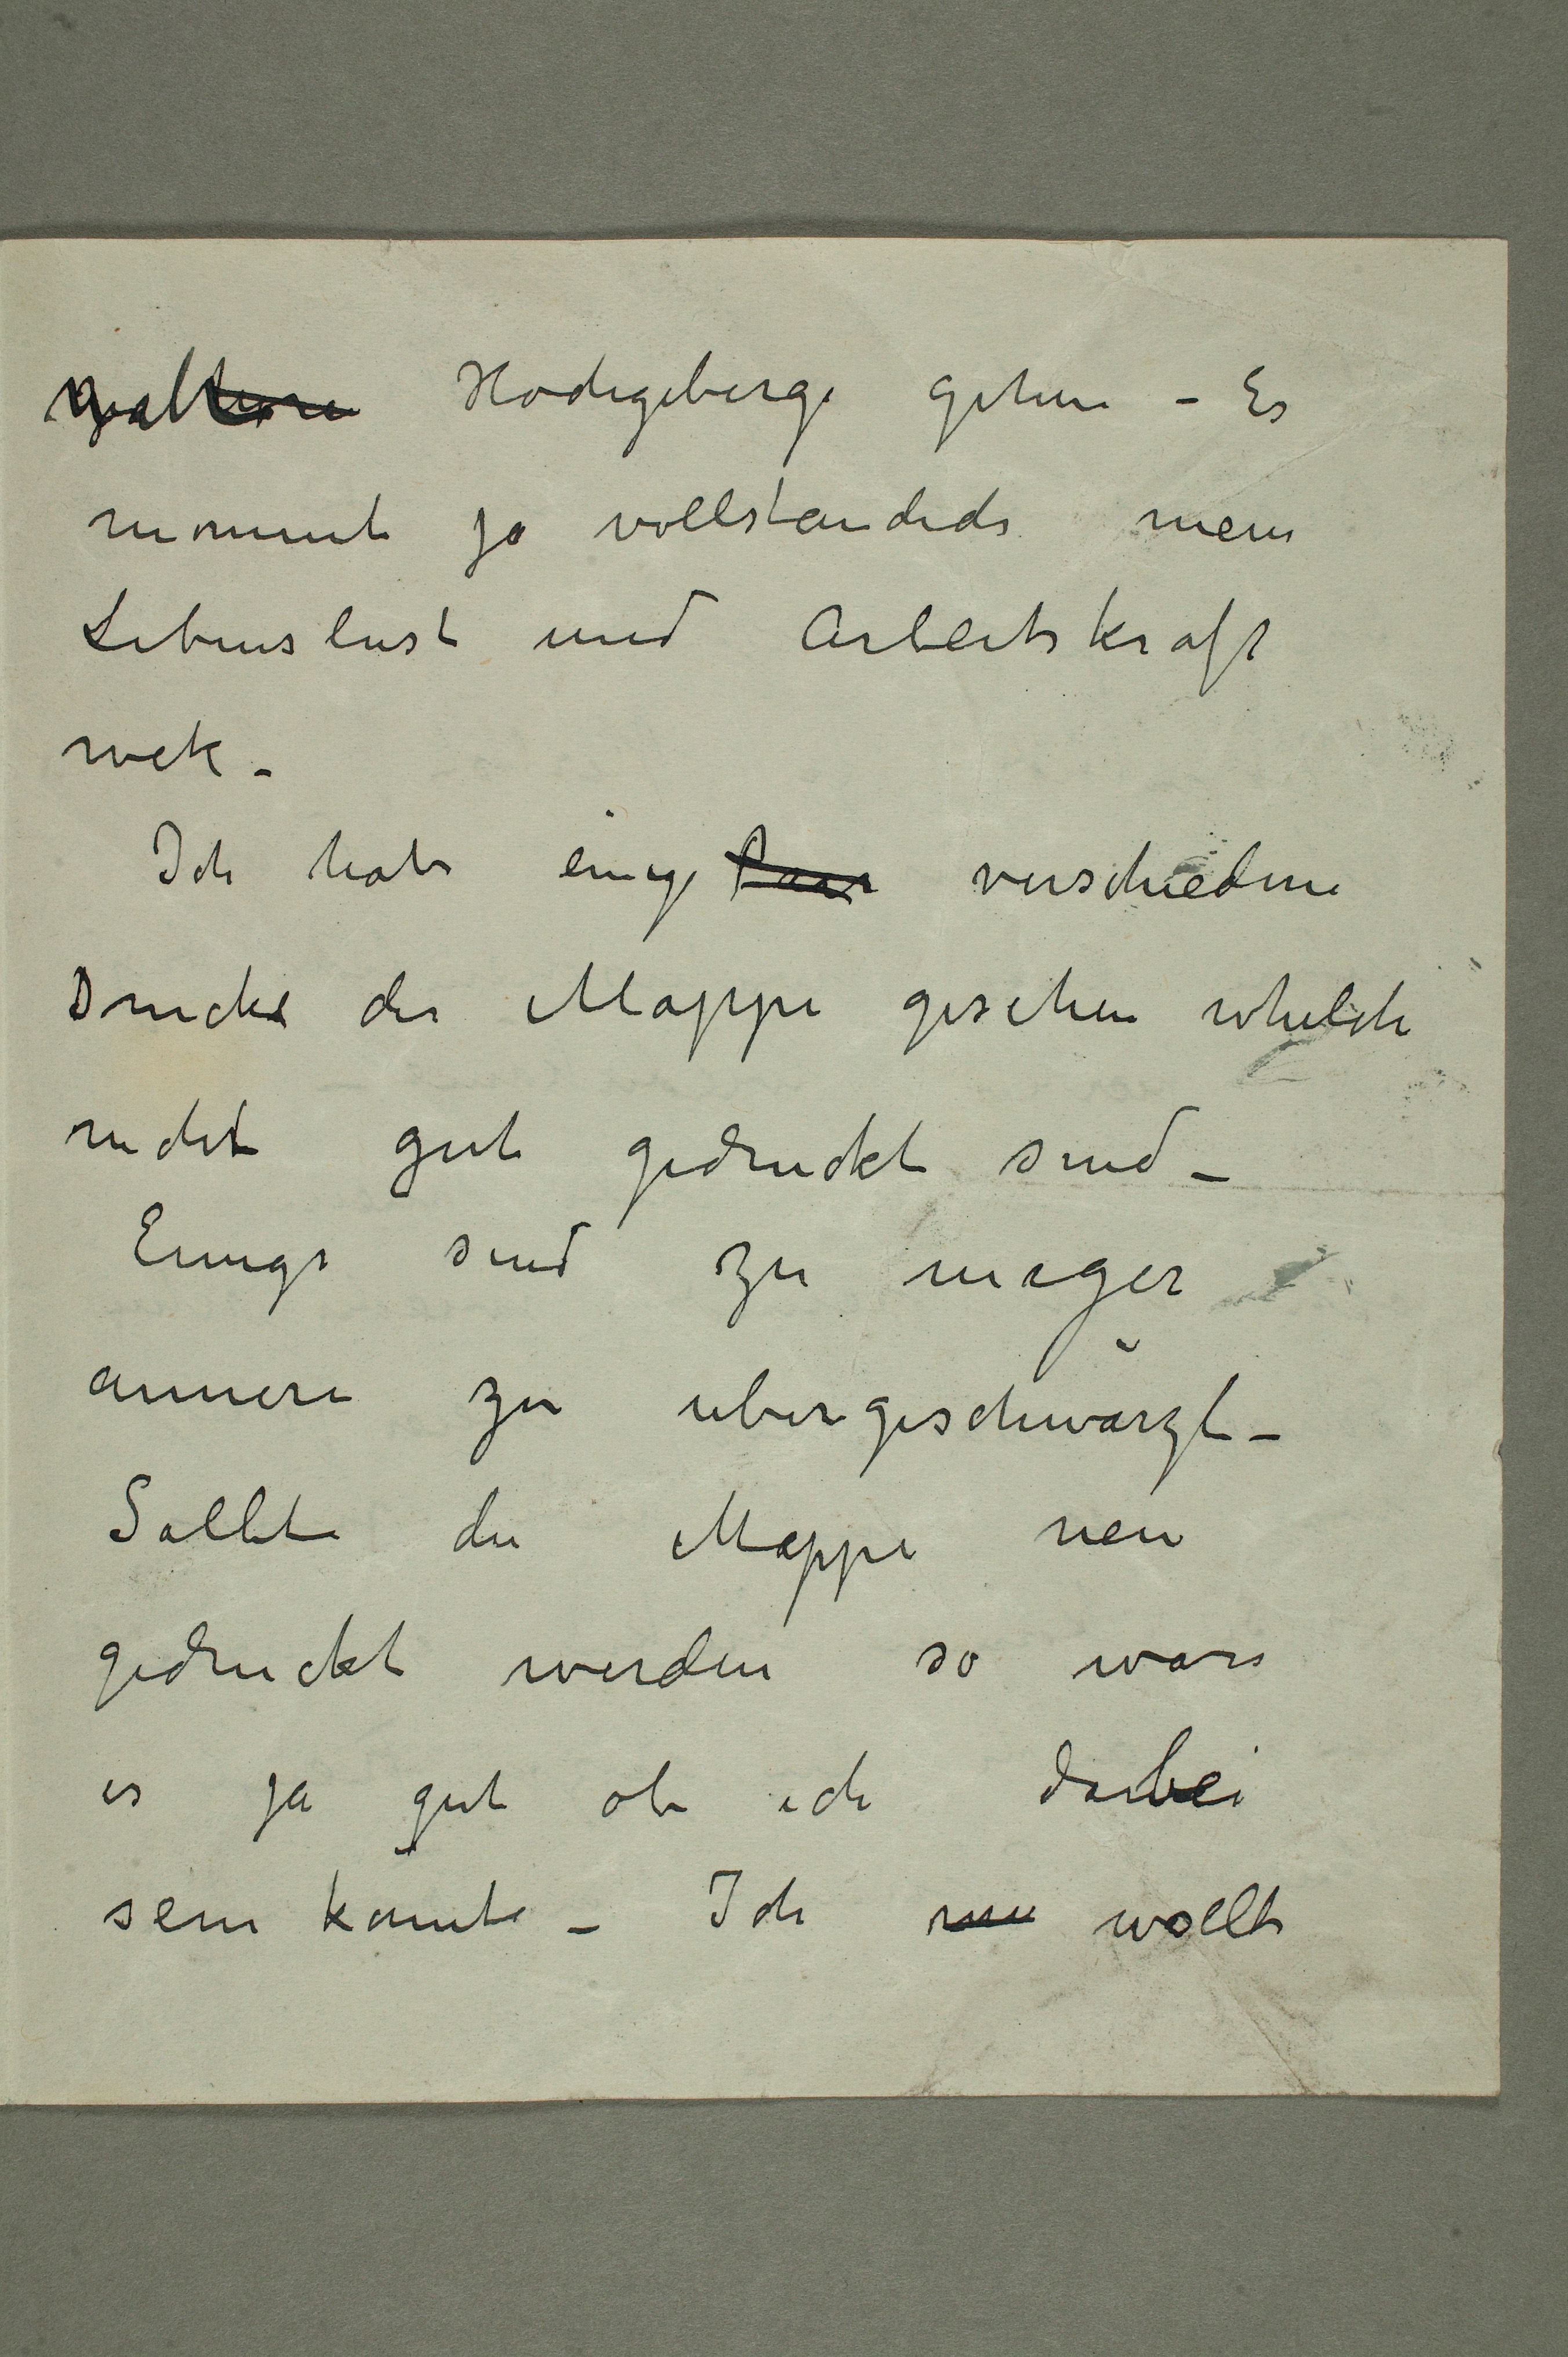 Hochgebirge gehen – Es
nommt ja vollstandich mein
Lebenslust und Arbeitskraft
wek –
Ich habe einige paar verschiedene
Drucke der Mappe gesehen whelche
nicht gut gedruckt sind –
Einige sind zu mager
annere zu übergeschwärzt –
Sollte die Mappe neu
gedruckt werden so ware
es ja gut ob ich dabei
sein könnte – Ich wollte